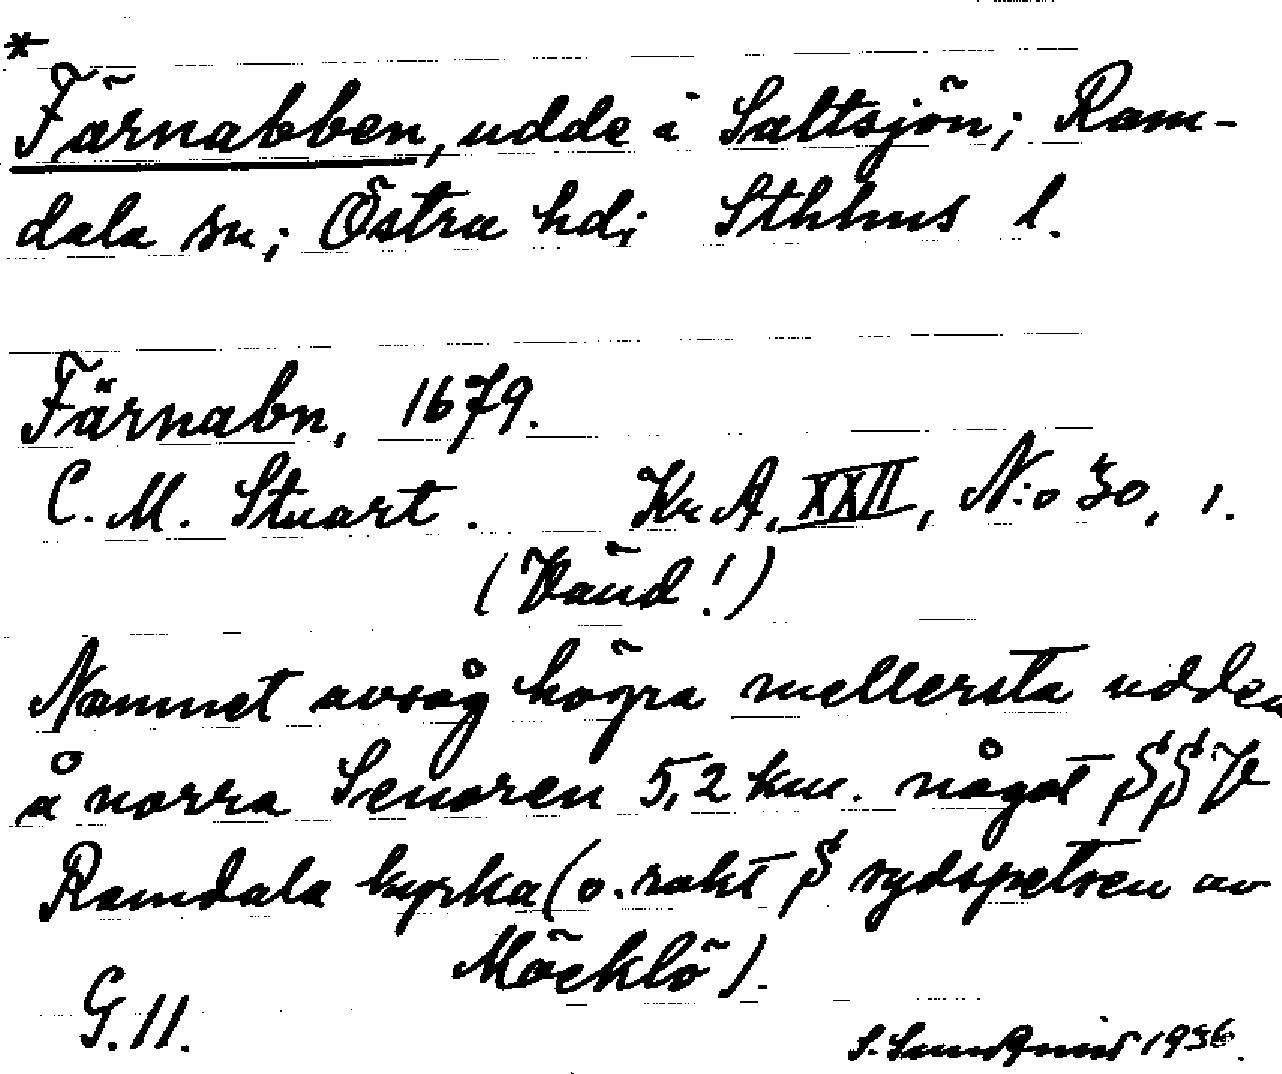 *
Färnabben, udde i Saltsjön; Ram-
dala sn; Östra hd; Sthlms l.
Färnabn, 1679.
C. M. Stuart. Kr A, XXII, N:o 30, 1.
(Vänd!)
Namnet avsåg högra mellersta udden
å norra Senoren 5,2 km. något SSV
Ramdala kyrka (o. rakt S sydspetsen av
Möcklö).
G. 11.
S. Sundqvist 1936.